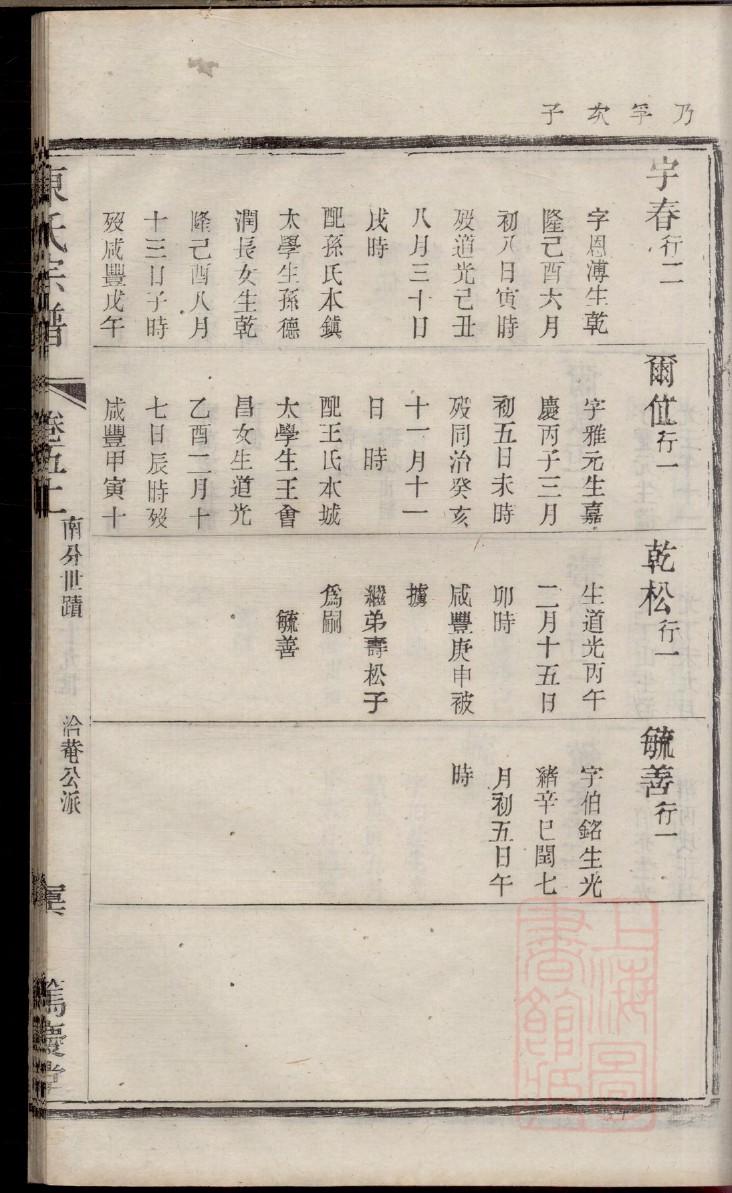 乃孚次子
宇春行二
字恩溥生乾
隆己酉六月
初八日寅時
歿道光己丑
八月三十日
戌時
配孫氏本鎮
太學生孫德
潤長女生乾
隆己酉八月
十三日子時
歿咸豐戊午
爾位行一
字雅元生嘉
慶丙子三月
初五日未時
歿同治癸亥
十一月十一
日 時
配王氏本城
太學生王會
昌女生道光
乙酉二月十
七日辰時歿
咸豐甲寅十
乾松行一
生道光丙午
二月十五日
卯時
咸豐庚申被
擄
繼弟壽松子
為嗣
毓善
毓善行一
字伯銘生光
緒辛巳閏七
月初五日午
時
氏宗譜
卷五上
南分世蹟
洽菴公派
篤慶堂
上海圖
書館藏